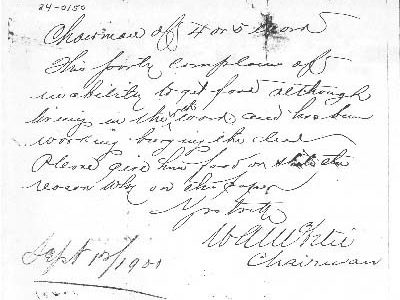 24-0150
Chairman of 4 or 5 Ward
This party complains of
inability to get food although
living in the ward and has been
working burying the dead
Please give him food or state the
reason why on this paper
Yrs truly
W A McVitie
Chairman
Sept